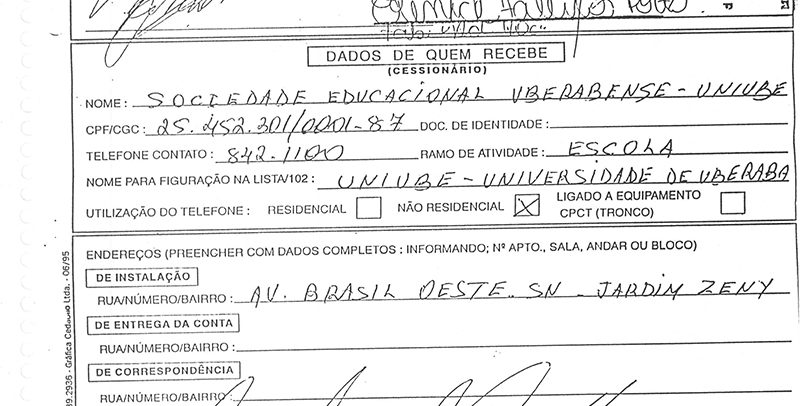 DADOS DE QUEM RECEBE
(CESSIONÁRIO)
NOME: SOCIEDADE EDUCACIONAL UBERABENSE - UNIUBE
CPF/CGC: 25.452.301/0001-87 DOC. DE IDENTIDADE:
TELEFONE CONTATO: 842-1100 RAMO DE ATIVIDADE: ESCOLA
NOME PARA FIGURAÇÃO NA LISTA/102: UNIUBE - UNIVERSIDADE DE UBERABA
UTILIZAÇÃO DO TELEFONE: RESIDENCIAL NÃO RESIDENCIAL X LIGADO A EQUIPAMENTO CPCT (TRONCO)
ENDEREÇOS (PREENCHER COM DADOS COMPLETOS : INFORMANDO; Nº APTO., SALA, ANDAR OU BLOCO)
DE INSTALAÇÃO
RUA/NÚMERO/BAIRRO: AV. BRASIL OESTE. SN - JARDIM ZENY
DE ENTREGA DA CONTA
RUA/NÚMERO/BAIRRO:
DE CORRESPONDÊNCIA
RUA/NÚMERO/BAIRRO:
2936 - Gráfica Ltda. - 06/95